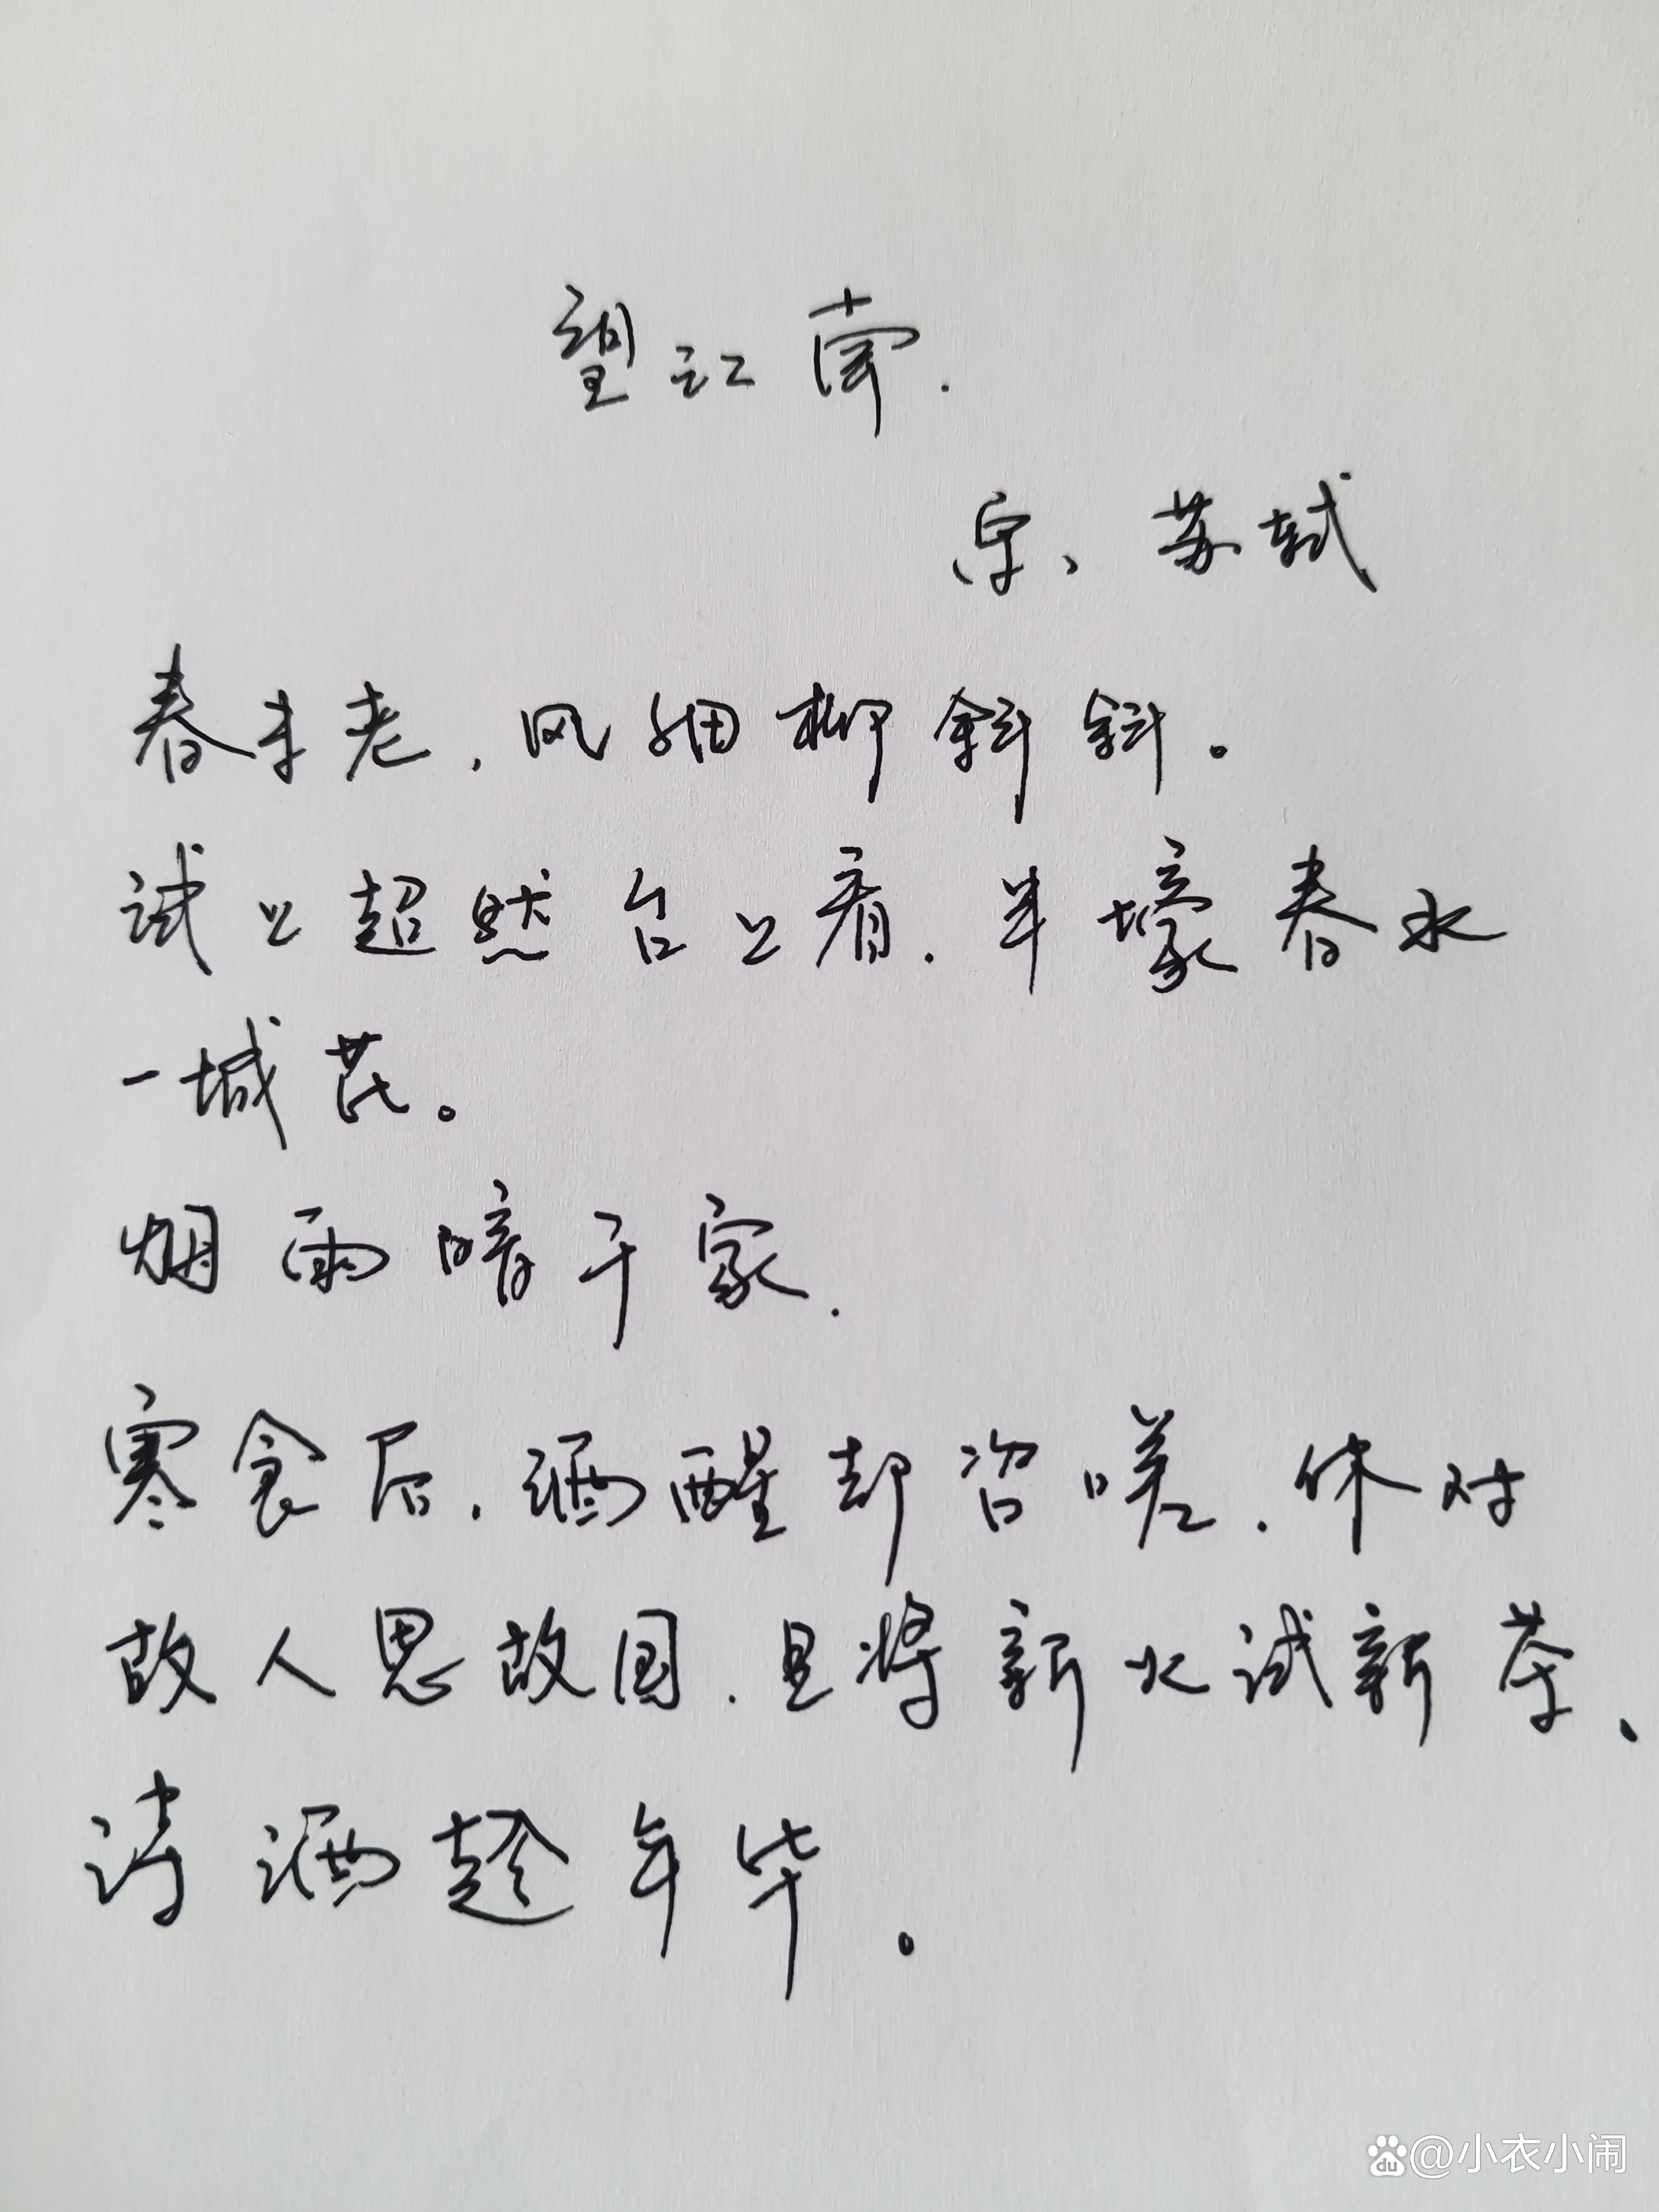 望江南.
宋、苏轼
春未老.风细柳斜斜。
试上超然台上看.半壕春水
一城花。
烟雨暗千家.
寒食后.酒醒却咨嗟.休对
故人思故国.且将新火试新茶、
诗酒趁年华。
du @小衣小闹